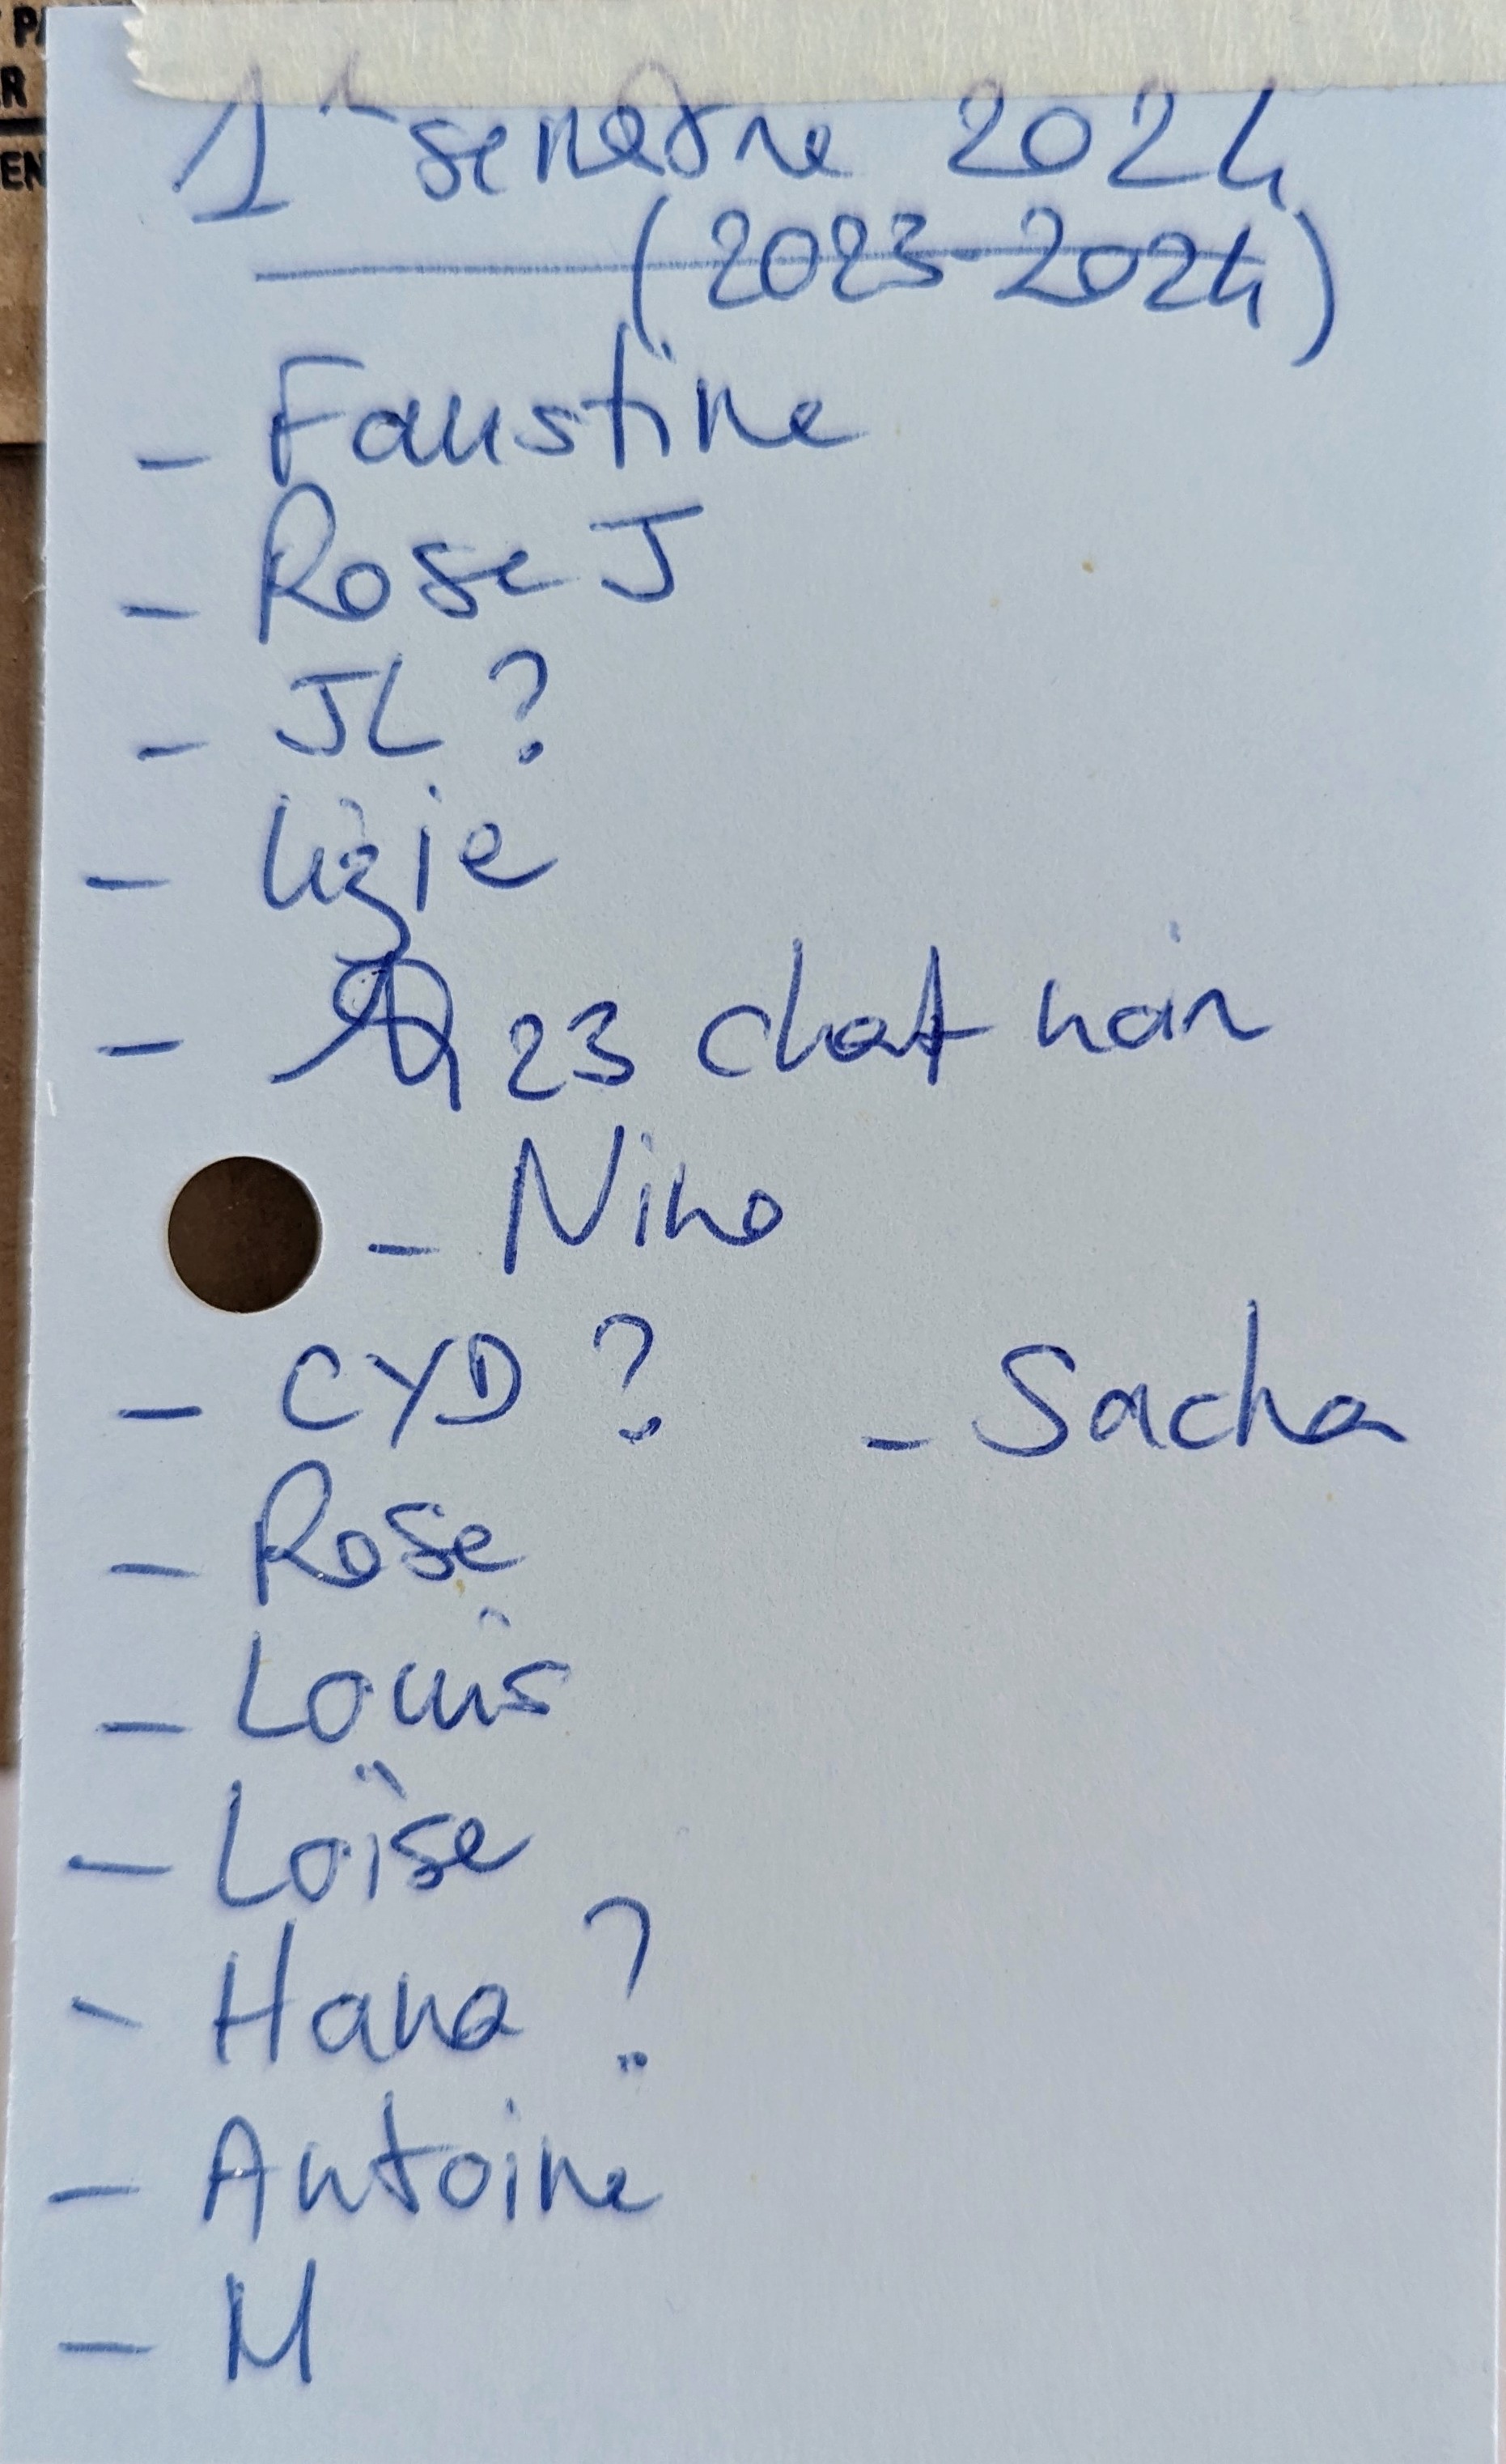 PA
R
EN
1er semestre 2024
(2023-2024)
- Faustine
- Rose J
- JL ?
- Lizie
- 23 chat noir
- Nino
- CYD ? - Sacha
- Rose
- Louis
- Loïse
- Hana ?
- Antoine
- M